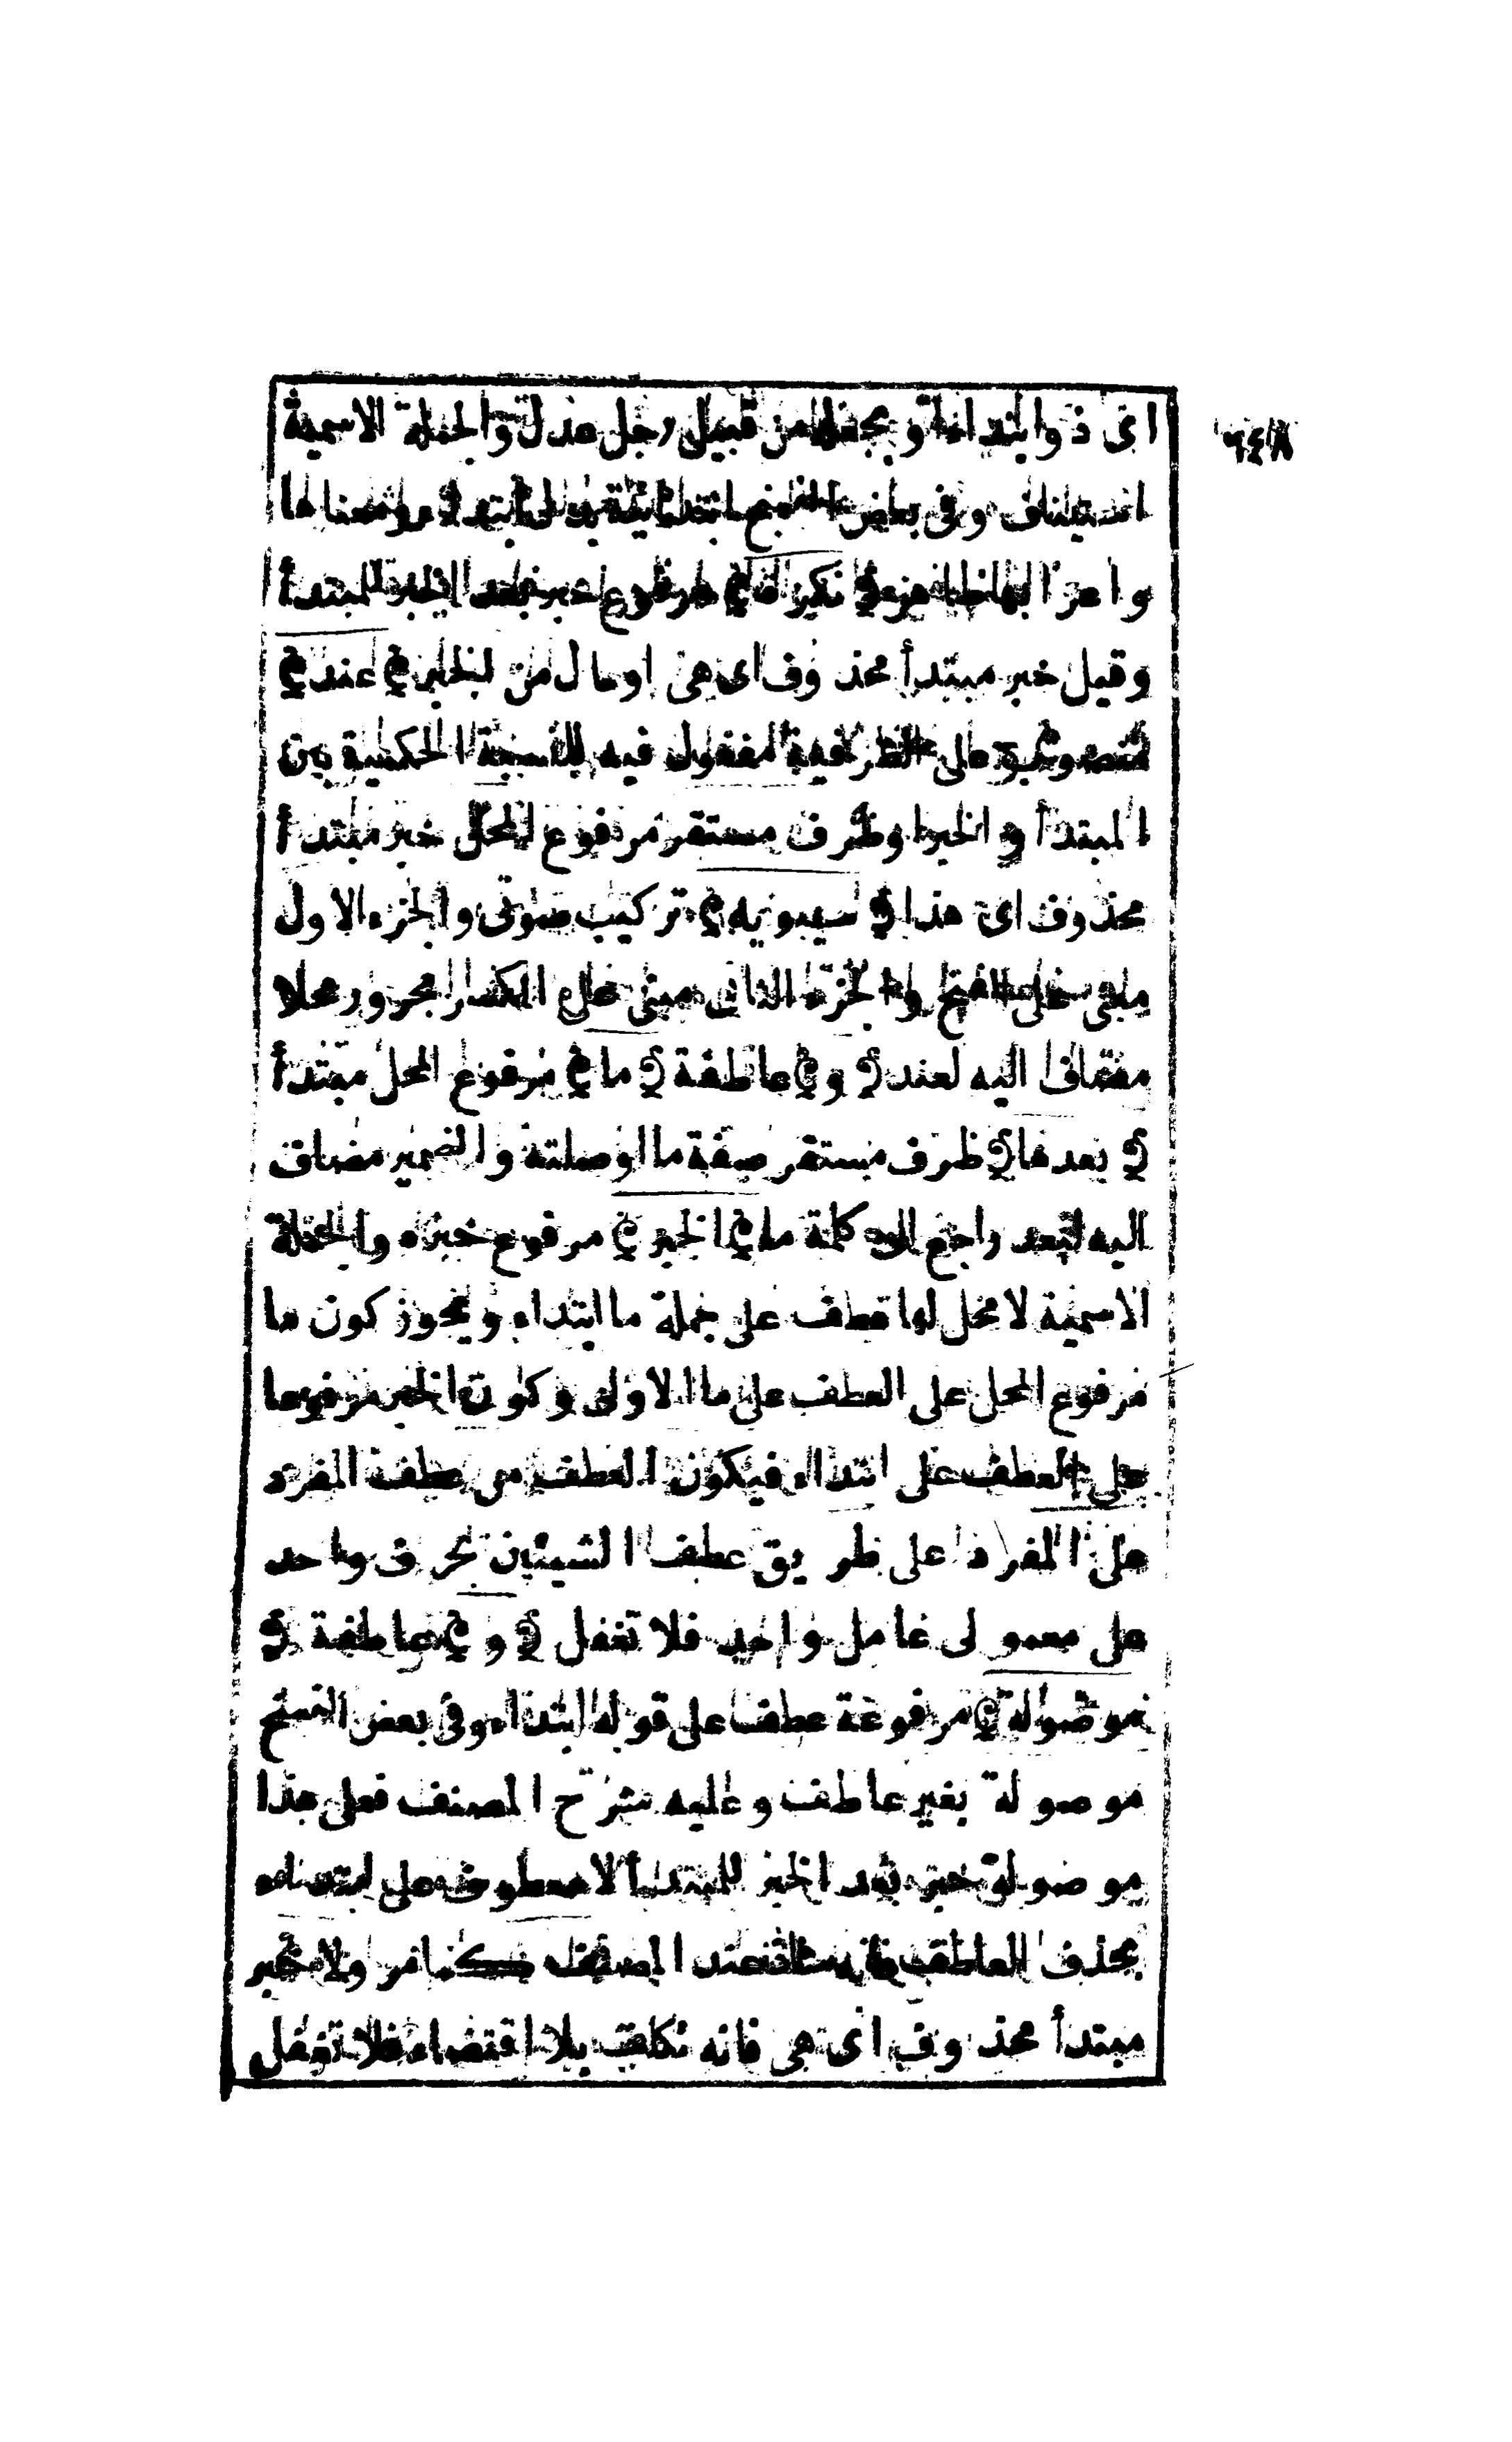 ٢٤٨
اى ذو ابتداء او بجعلها من قبيل رجل عدل والجملة الاسمية
استيناف وفى بعض النسخ ابتدائية بدل ابتداء ومعناها
واعرابها ظاهر ﴿ نكير ﴾ مرفوع خبر بعد الخبر للمبتدأ
وقيل خبر مبتدأ محذوف اى هى او حال من الخبر ﴿ عند ﴾
منصوب على الظرفية مفعول فيه للنسبة الحكمية بين
المبتدأ والخبر او ظرف مستقر مرفوع المحل خبر مبتدأ
محذوف اى هذا ﴿ سيبويه ﴾ تركيب صوتى والجزء الاول
مبنى على الفتح والجزء الثانى مبنى على الكسر مجرور محلا
مضاف اليه لعند ﴿ و ﴾ عاطفة ﴿ ما ﴾ مرفوع المحل مبتدأ
﴿ بعدها ﴾ ظرف مستقر صفة ما او صلته والضمير مضاف
اليه لبعد راجع الى كلمة ما ﴿ الخبر ﴾ مرفوع خبره والجملة
الاسمية لا محل لها عطف على جملة ما ابتداء ويجوز كون ما
مرفوع المحل على العطف على ما الاولى وكون الخبر مرفوعا
على العطف على ابتداء فيكون العطف من عطف المفرد
على المفرد على طريق عطف الشيئين بحرف واحد
على معمولى عامل واحد فلا تغفل ﴿ و ﴾ عاطفة ﴿
موصولة ﴾ مرفوعة عطف على قوله ابتداء وفى بعض النسخ
موصولة بغير عاطف وعليه شرح المصنف فعلى هذا
موصولة خبر بعد الخبر للمبتدأ لا معطوف على ابتداء
بحذف العاطف فانه شاذ عند المصنف كما مر ولا خبر
مبتدأ محذوف اى هى فانه تكلف بلا اقتضاء فلا تغفل